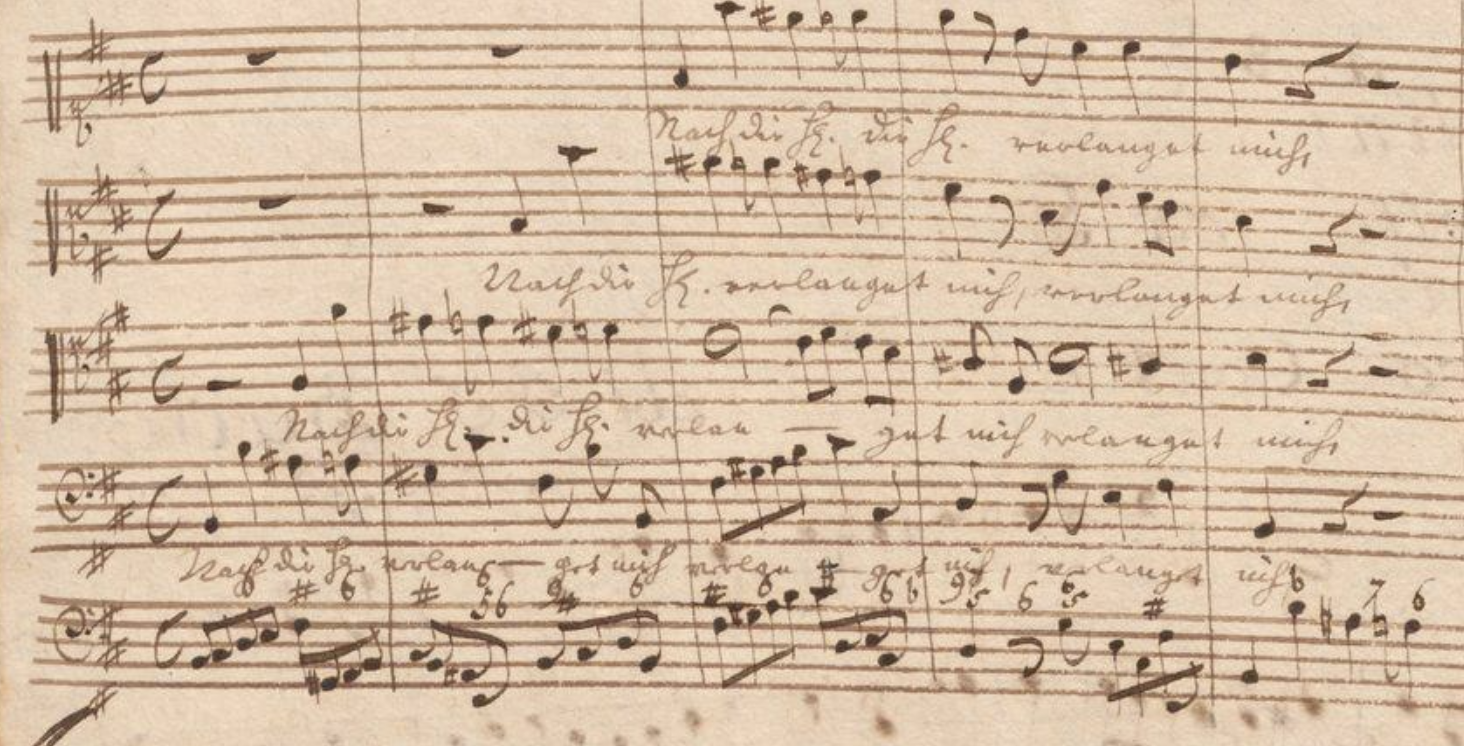 Nach dir H. dir H. verlanget mich,
Nach dir H. verlanget mich, verlanget mich,
Nach dir H. dir H. verlan — get mich verlanget mich,
Nach dir H. verlan — get mich verlan — get mich, verlanget mich,